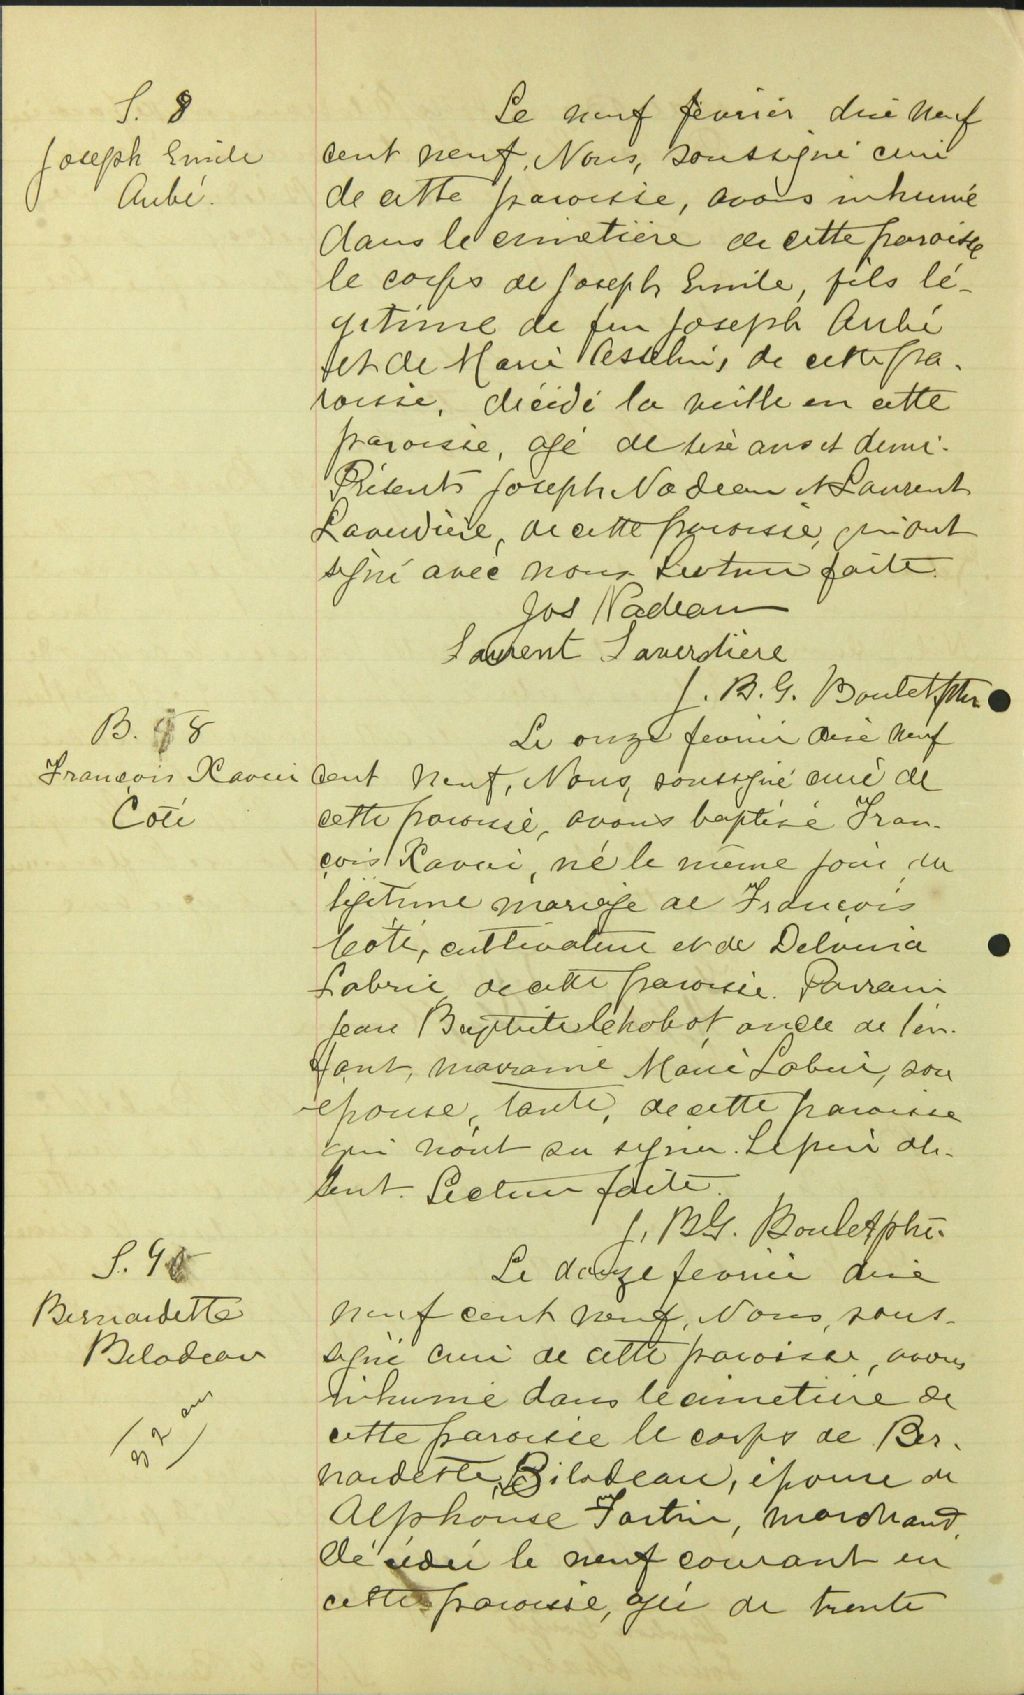 S. 8
Joseph Emile
Aubé.
Le neuf février dix neuf
cent neuf, Nous, soussigné curé
de cette paroisse, avons inhumé
dans le cimetière de cette paroisse
le corps de Joseph Emile, fils lé-
gitime de feu Joseph Aubé
et de Marie Asselin, de cette pa-
roisse, décédé la veille en cette
paroisse, agé de seize ans et demi.
Présents Joseph Nadeau et Laurent
Laverdière, de cette paroisse, qui ont
signé avec nous. Lecture faite.
Jos Nadeau
Laurent Laverdière
J. B. G. Boulet, ptre
B. 8
François Xavier
Coté
Le onze fevrier dix neuf
cent neuf, Nous, soussigné curé de
cette paroisse, avons baptisé Fran-
çois Xavier, né le même jour, du
légitime mariage de François
Coté, cultivateur et de Delvina
Labrie, de cette paroisse. Parrain
Jean Baptiste Chabot, oncle de l'en-
fant, marraine Marie Labrie, son
épouse, tante, de cette paroisse
qui n'ont su signer. Le père ab-
sent. Lecture faite.
J. B G. Boulet, ptre.
S. 9
Bernardette
Bilodeau
32 ans
Le douze fevrier dix
neuf cent neuf, Nous, sous-
signé curé de cette paroisse, avons
inhumé dans le cimetière de
cette paroisse le corps de Ber-
nardette Bilodeau, épouse de
Alphonse Fortin, marchand,
décédée le neuf courant en
cette paroisse, agée de trente